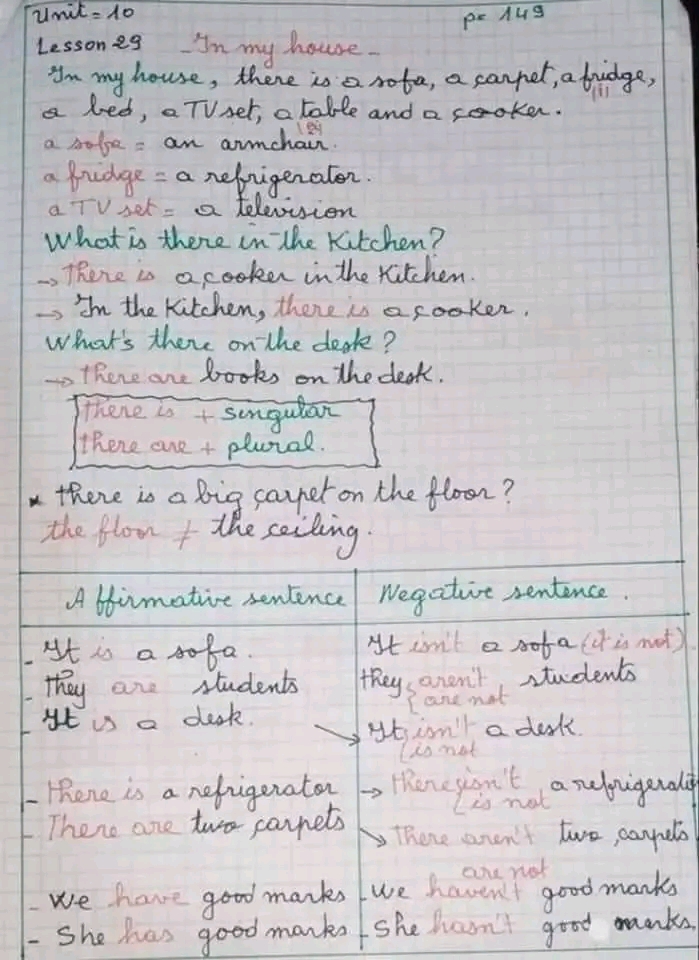 Unit = 10 p= 149
Lesson 29 - In my house -
In my house, there is a sofa, a carpet, a fridge,
(i)
a bed, a TV set, a table and a cooker.
(ei)
a sofa = an armchair.
a fridge = a refrigerator.
a TV set = a television
What is there in the Kitchen?
→ There is a cooker in the Kitchen.
→ In the Kitchen, there is a cooker.
What's there on the desk?
→ there are books on the desk.
there is + singular
there are + plural.
* there is a big carpet on the floor?
the floor ≠ the ceiling.
Affirmative sentence Negative sentence.
- It is a sofa. It isn't a sofa (it is not)
- they are students they { aren't students
{ are not
- It is a desk. → It { isn't a desk.
{ is not
- there is a refrigerator → there { isn't a refrigerato
{ is not
- There are two carpets → There aren't two carpets
are not
- We have good marks - We haven't good marks
- She has good marks - She hasn't good marks.